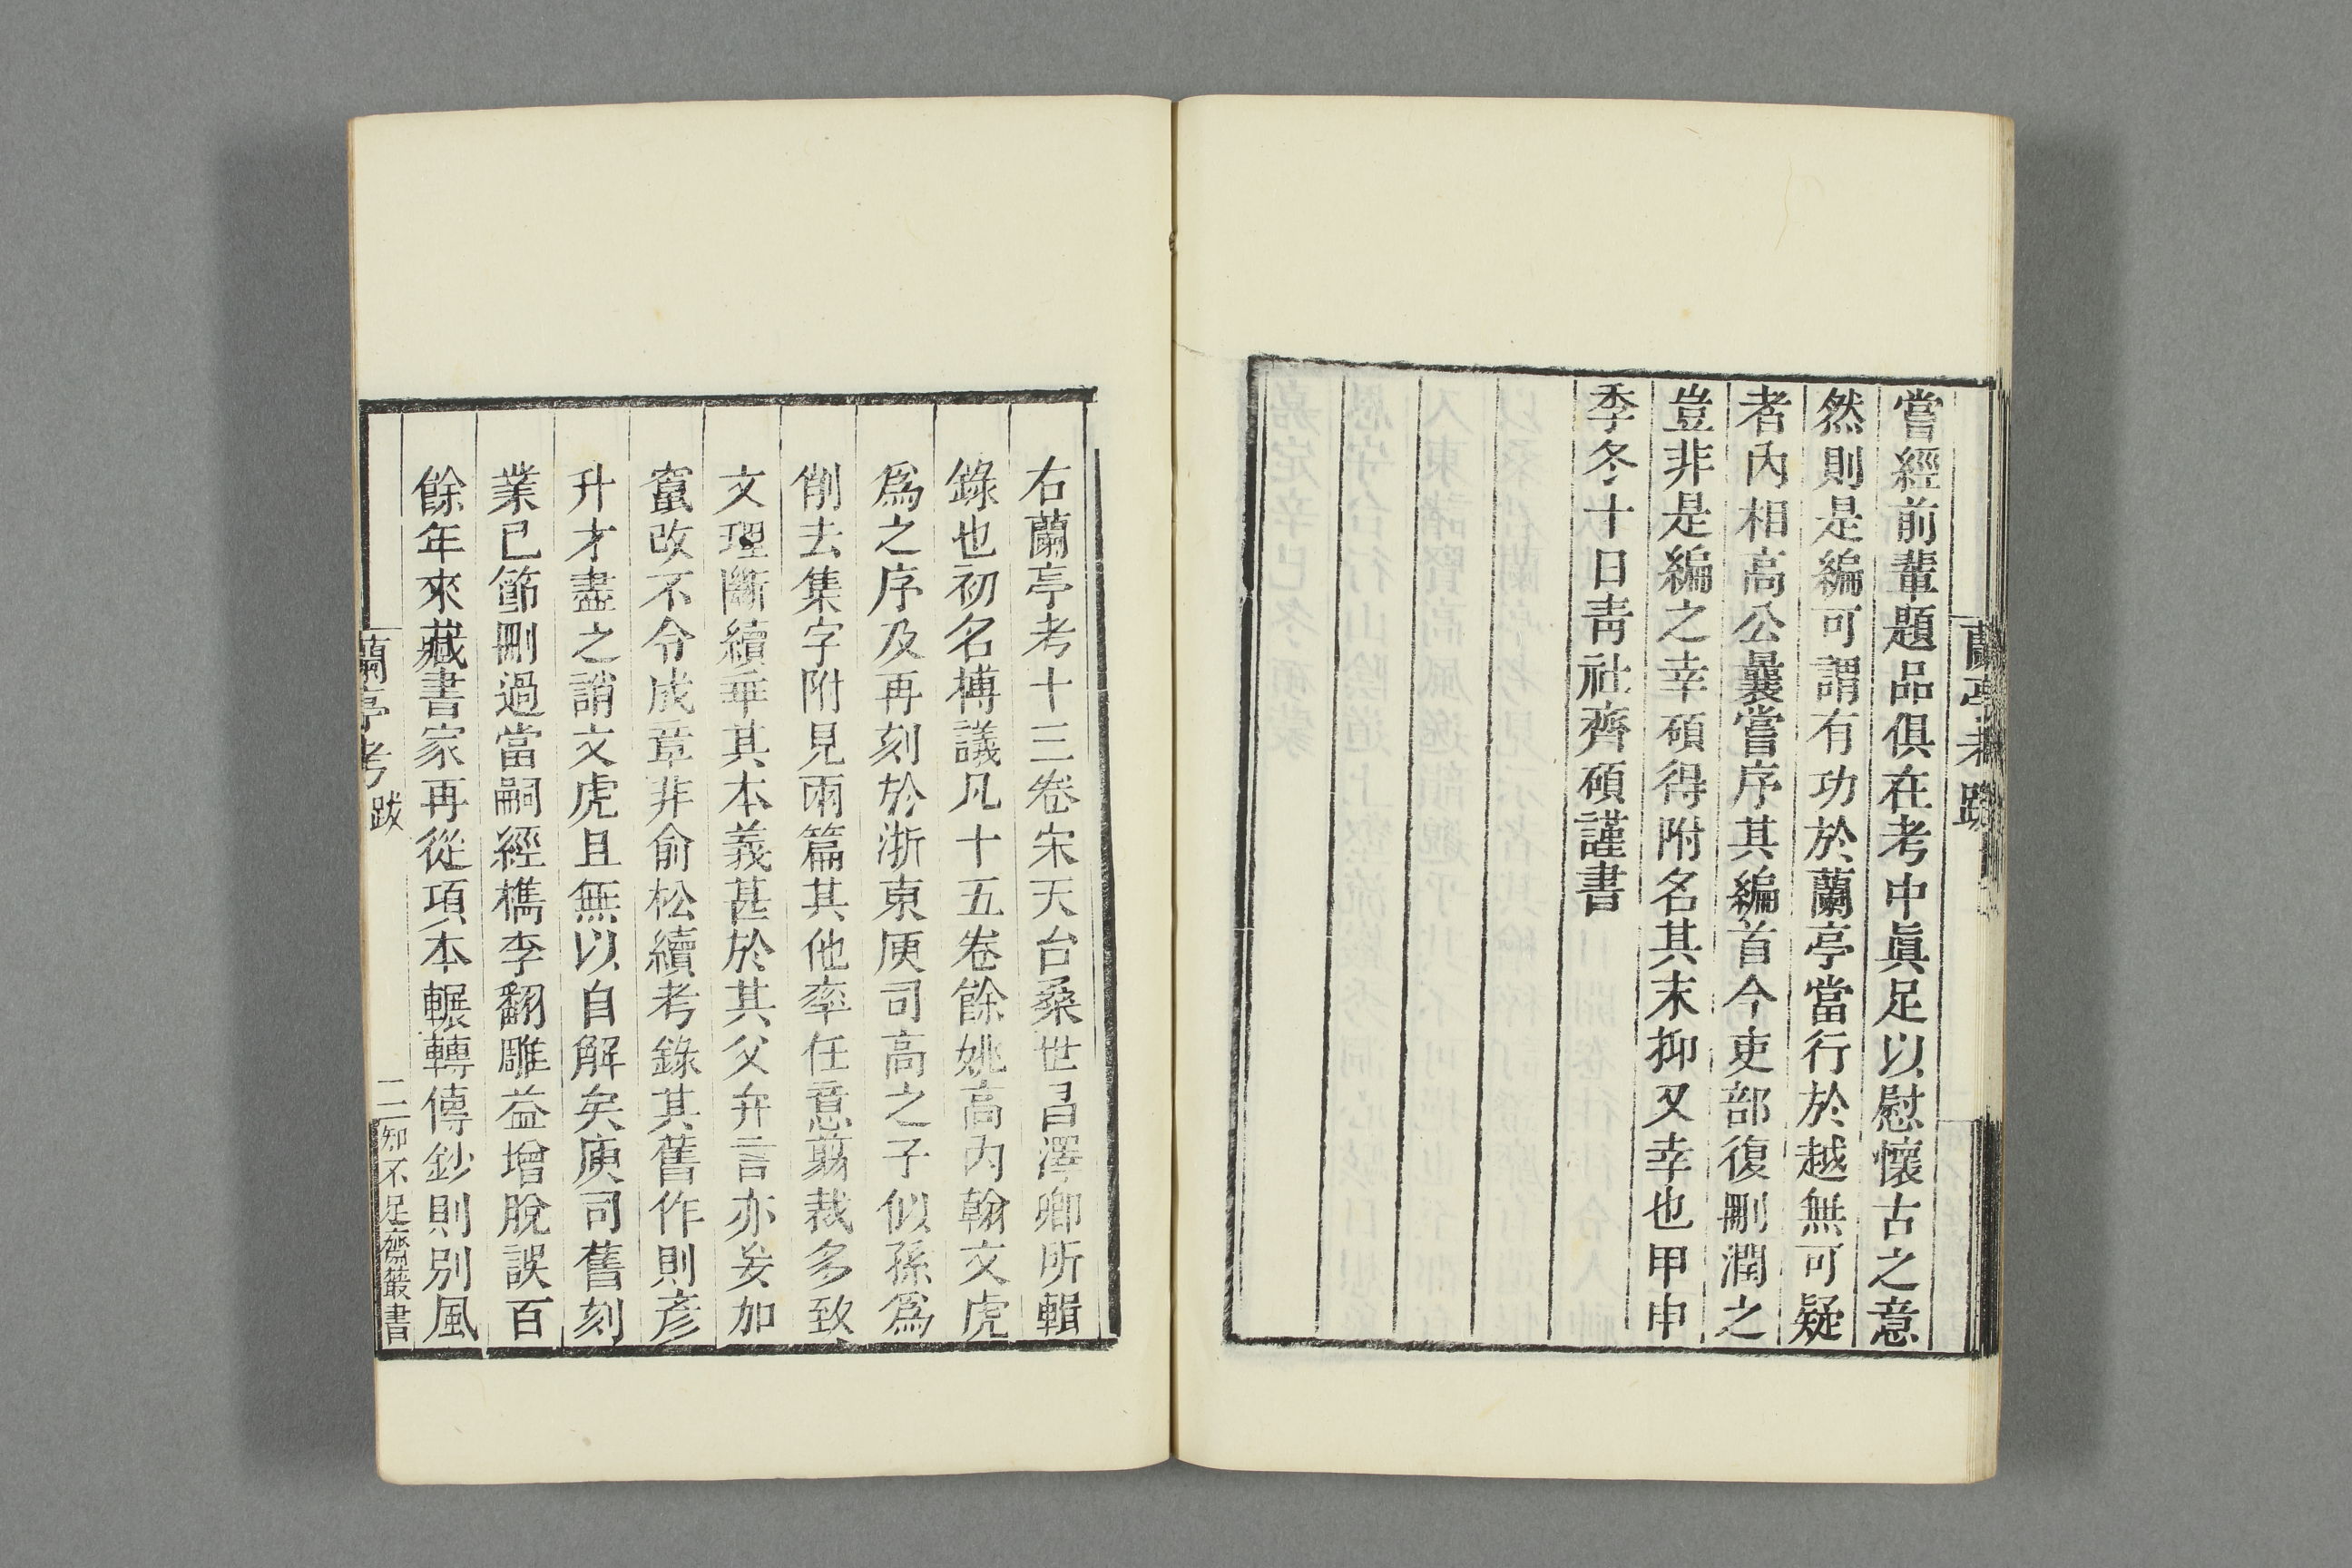 嘗經前輩題品俱在考中眞足以慰懷古之意
然則是編可謂有功於蘭亭當行於越無可疑
者內相高公曩嘗序其編首今吏部復刪潤之
豈非是編之幸碩得附名其末抑又幸也甲申
季冬十日靑社齊碩謹書
蘭亭考跋
右蘭亭考十三卷宋天台桑世昌澤卿所輯
錄也初名博議凡十五卷餘姚高內翰文虎
爲之序及再刻於浙東庾司高之子似孫爲
削去集字附見兩篇其他率任意翦裁多致
文理斷續乖其本義甚於其父弁言亦妄加
竄改不令成章非俞松續考錄其舊作則彥
升才盡之誚文虎且無以自解矣庾司舊刻
業已節刪過當嗣經檇李翻雕益增脫誤百
餘年來藏書家再從項本輾轉傳鈔則別風
蘭亭考 跋 二 知不足齋叢書